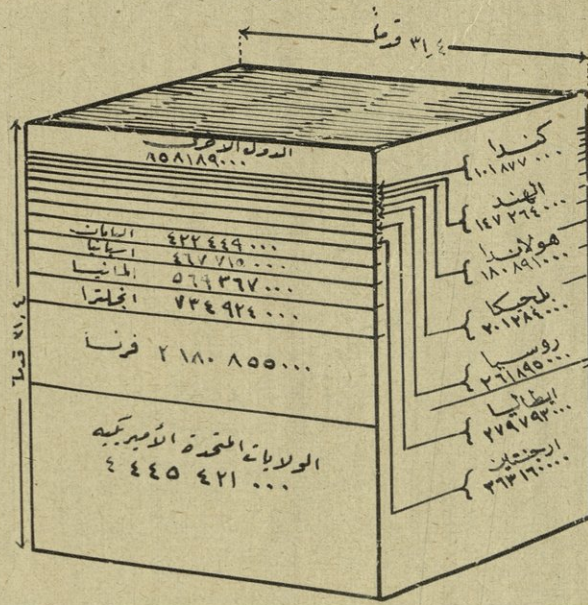 ٣١,٤ قدماً
الدول الأخرى
٨٥٨١٨٩٠٠٠
اليابان ٤٢٢ ٤٤٩ ٠٠٠
اسبانيا ٤٦٧ ٧١٥ ٠٠٠
المانيا ٥٦٩ ٣٦٧ ٠٠٠
انجلترا ٧٣٤ ٩٢٤ ٠٠٠
فرنسا ٢ ١٨٠ ٨٥٥ ٠٠٠
الولايات المتحدة الأميريكية
٤ ٤٤٥ ٤٢١ ٠٠٠
٣١,٤ قدماً
كندا
١٠١٨٧٧٠٠٠
الهند
١٤٧٢٦٤٠٠٠
هولاندا
١٨٠٨٩١٠٠٠
بلجيكا
٢٠١٢٨٤٠٠٠
روسيا
٢٦١٨٩٥٠٠٠
ايطاليا
٢٧٩٧٩٣٠٠٠
ارجنتين
٣٦٣١٦٠٠٠٠